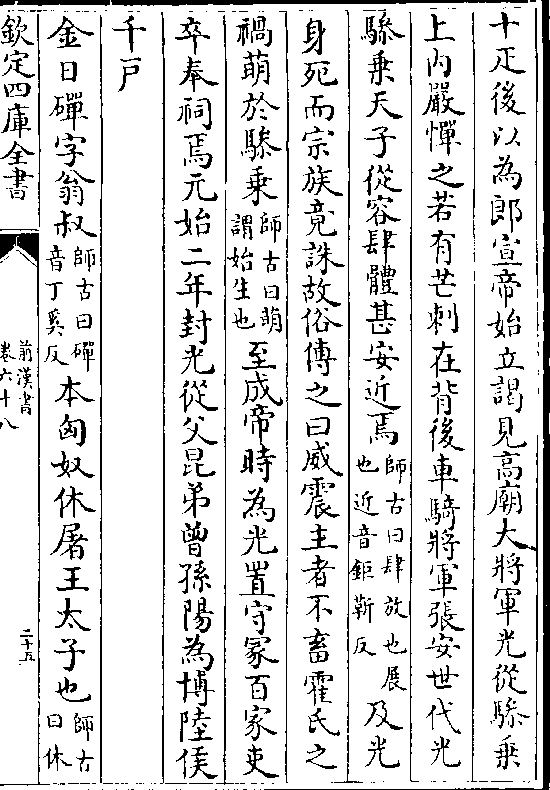 十疋後以為郎宣帝始立謁見高廟大將軍光從驂乗
上内嚴憚之若有芒刺在背後車騎將軍張安世代光
驂乗天子從容肆體甚安近焉師古曰肆放也展也近音鉅靳反及光
身死而宗族竟誅故俗傳之曰威震主者不畜霍氏之
禍萌於驂乗師古曰萌謂始生也至成帝時為光置守冢百家吏
卒奉祠焉元始二年封光從父昆弟曾孫陽為博陸侯
千戸
金日磾字翁叔師古曰磾音丁奚反本匈奴休屠王太子也師古曰休
欽定四庫全書
前漢書
卷六十八
二十五